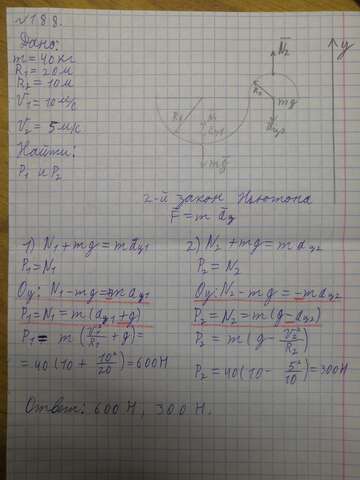 № 188.
Дано:
m = 40 кг
R₁ = 20 м
R₂ = 10 м
V₁ = 10 м/с
V₂ = 5 м/с
Найти:
P₁ и P₂
N₂
y
R₂
mg
aц₂
R₁
N₁
aц₁
mg
2-й закон Ньютона
F = m aц
1) N₁ + mg = m aц₁
P₁ = N₁
Oy: N₁ - mg = m aц₁
P₁ = N₁ = m(aц₁ + g)
P₁ = m (V₁²/R₁ + g) =
= 40 (10 + 10²/20) = 600 Н
2) N₂ + mg = m aц₂
P₂ = N₂
Oy: N₂ - mg = -m aц₂
P₂ = N₂ = m(g - aц₂)
P₂ = m (g - V₂²/R₂)
P₂ = 40(10 - 5²/10) = 300 Н
Ответ: 600 Н, 300 Н.